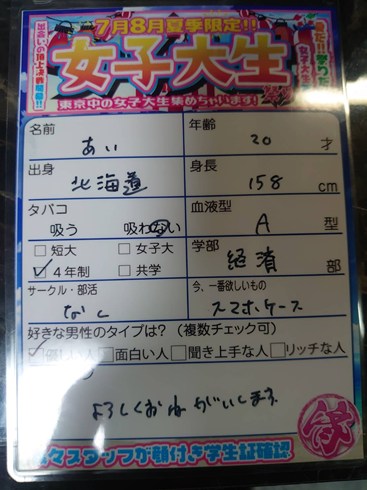 7月8月夏季限定!!
出会いの頂上決戦開幕!!
女子大生
東京中の女子大生集めちゃいます!
名前 あい
年齢 20 才
出身 北海道
身長 158 cm
タバコ 吸う 吸わない
血液型 A 型
□短大 □女子大
☑4年制 □共学
学部 経済 部
サークル・部活 なし
今、一番欲しいもの スマホケース
好きな男性のタイプは?(複数チェック可)
☑優しい人 □面白い人 □聞き上手な人 □リッチな人
よろしくおねがいします
スタッフが顔付き学生証確認